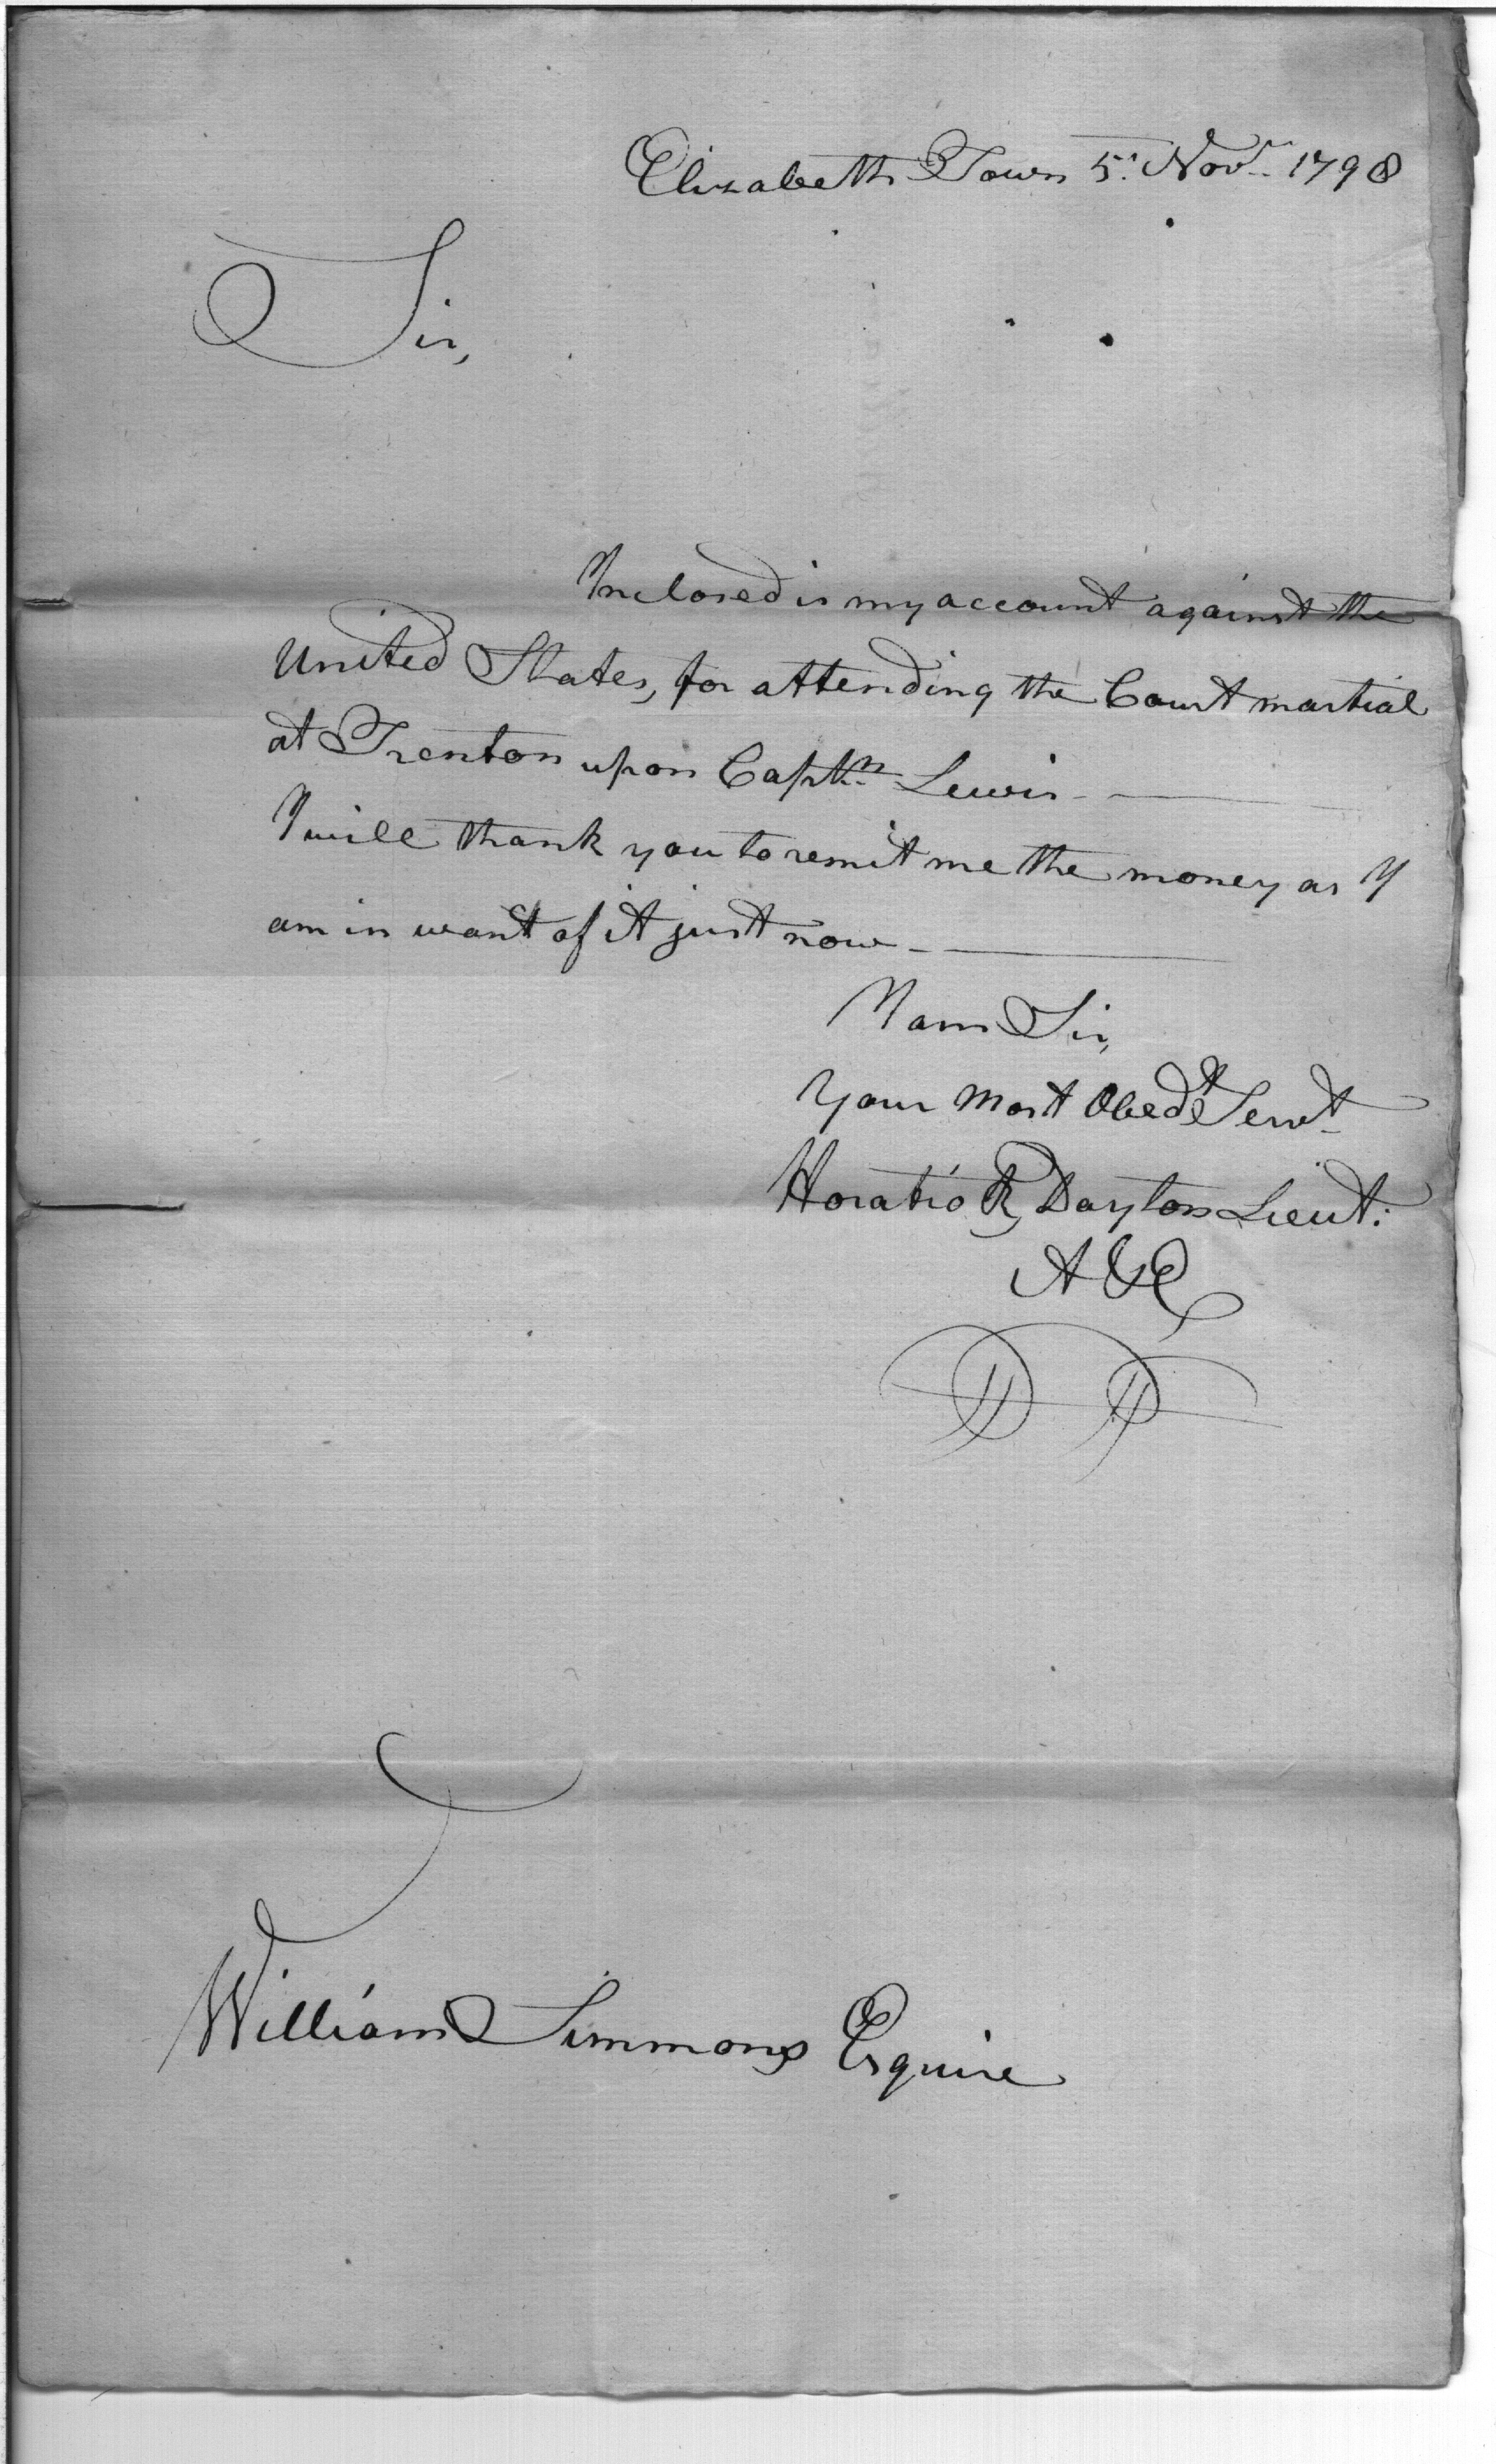 Elizabeth Town 5th. Novr. 1798
Sir,
Inclosed is my account against the
United States, for attending the Court martial
at Trenton upon Captn. Lewis -
I will thank you to remit me the money as I
am in want of it just now -
I am Sir,
Your Most Obedt Servt
Horatio R Dayton Lieut:
A&E
William Simmons Esquire